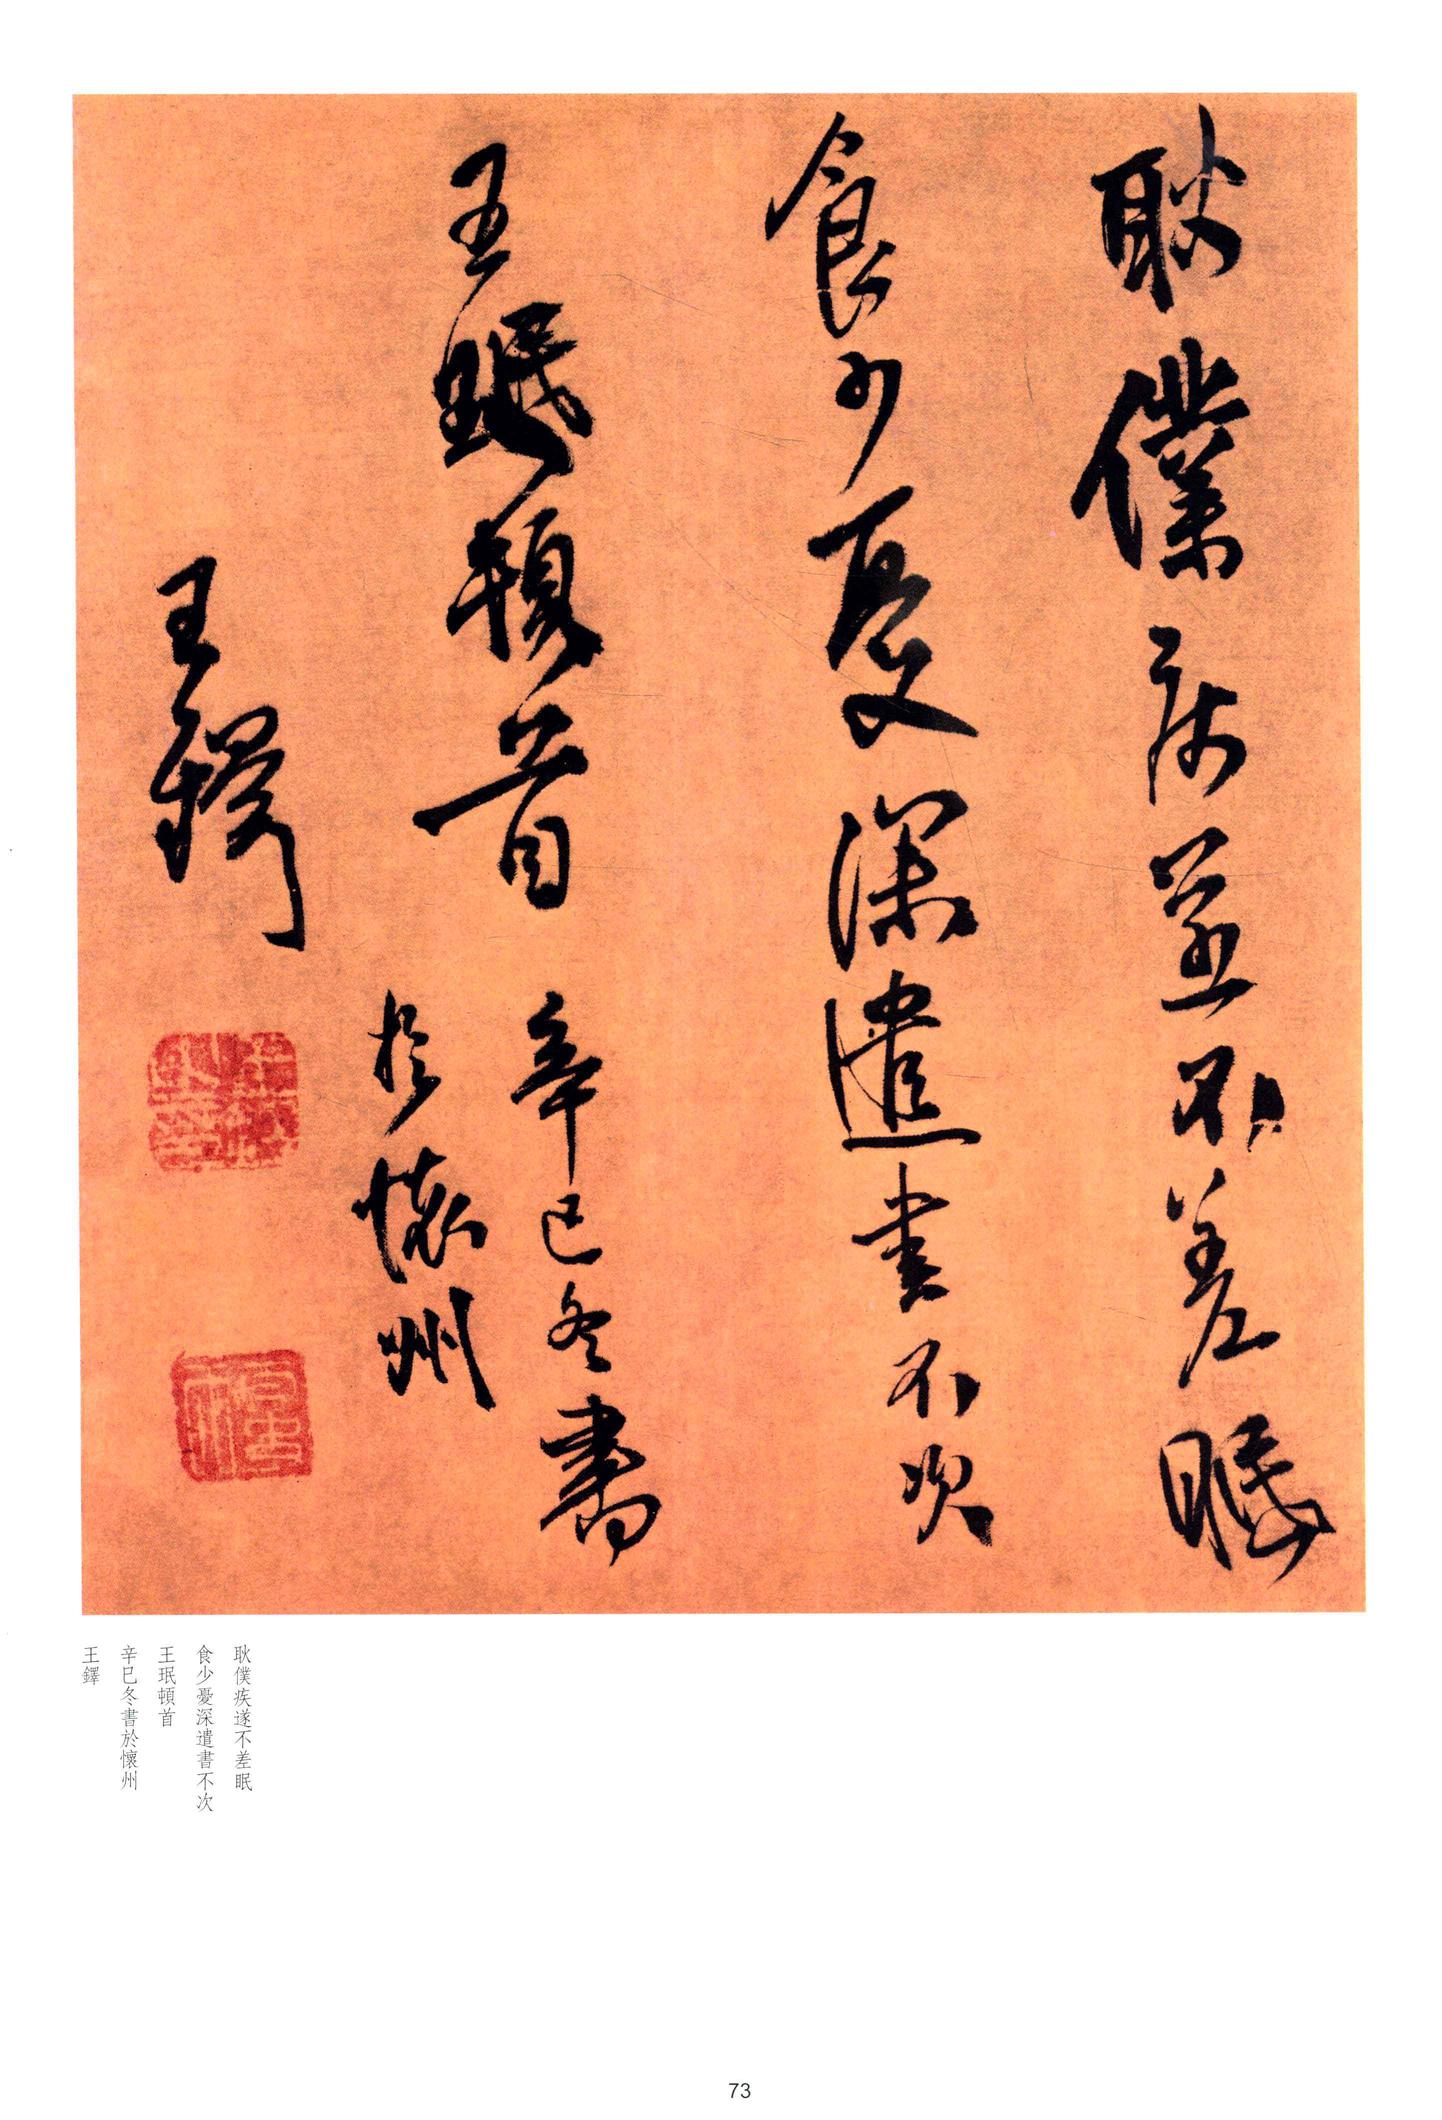 耿僕疾遂不差眠
食少憂深遣書不次
王珉頓首
辛巳冬書
於懷州
王鐸
耿僕疾遂不差眠
食少憂深遣書不次
王珉頓首
辛巳冬書於懷州
王鐸
73